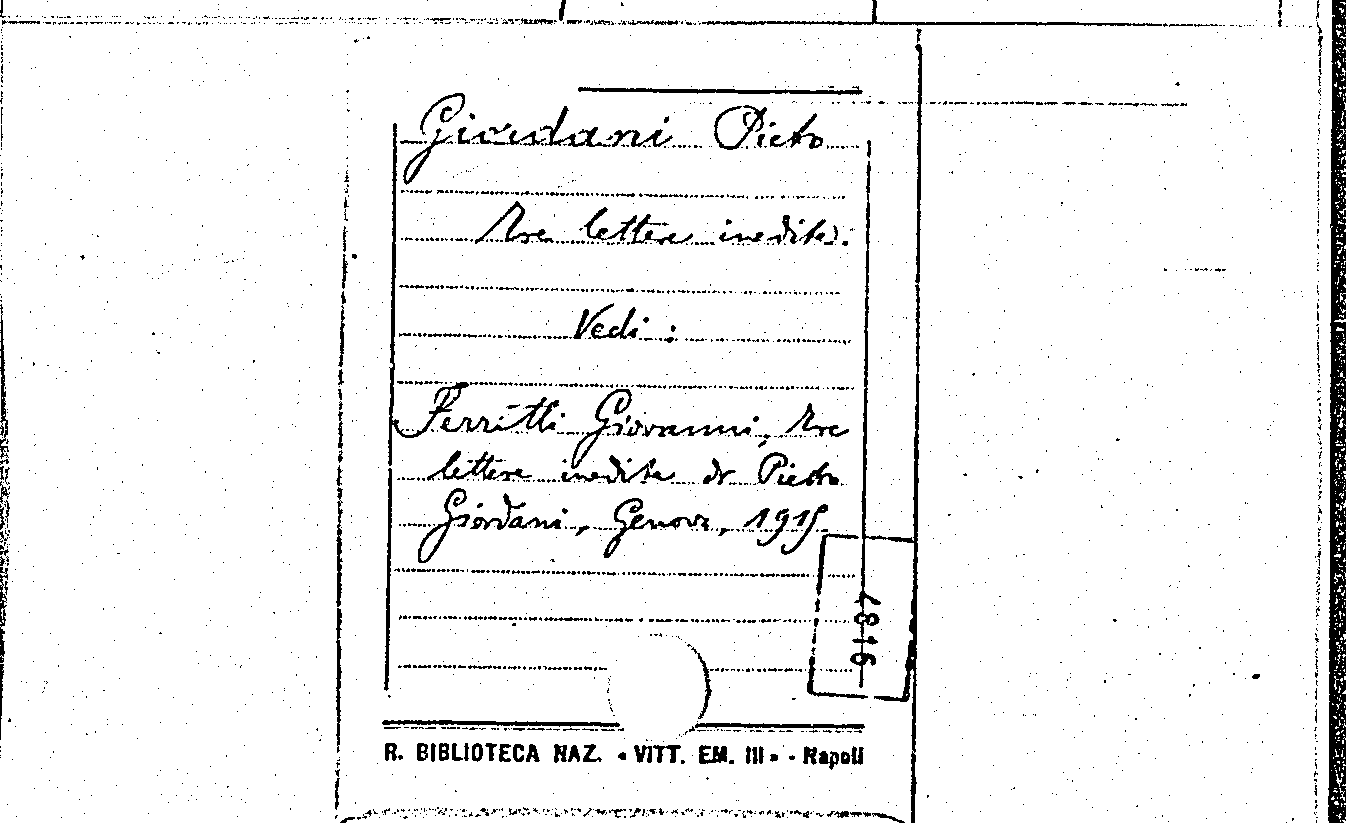 Giordani Pietro
Tre lettere inedite.
Vedi :
Ferretti Giovanni, Tre
lettere inedite di Pietro
Giordani, Genova, 1915.
R. BIBLIOTECA NAZ. « VITT. EM. III » - Napoli